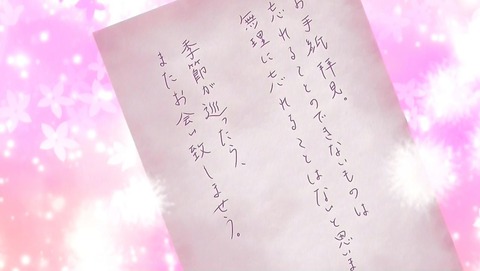 お手紙拝見。
忘れることのできないものは
無理に忘れることはないと思いま
季節が巡ったら、
またお会い致しませう。